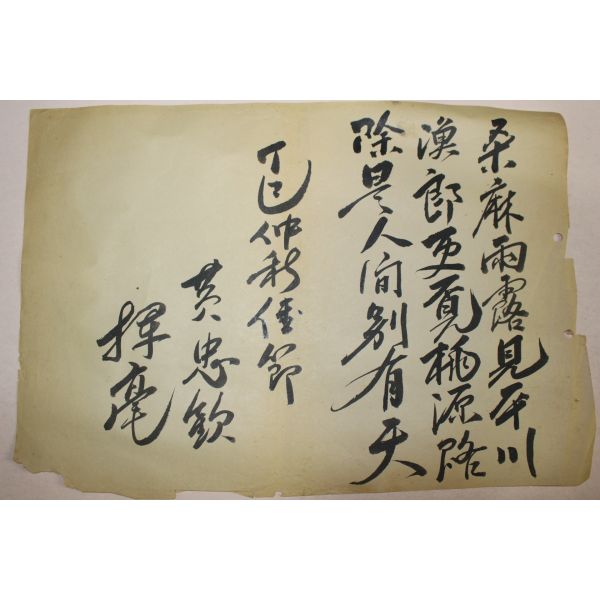 桑麻雨露見平川
漁郎更覓桃源路
除是人間別有天
丁巳仲秋佳節
黃忠欽
揮毫